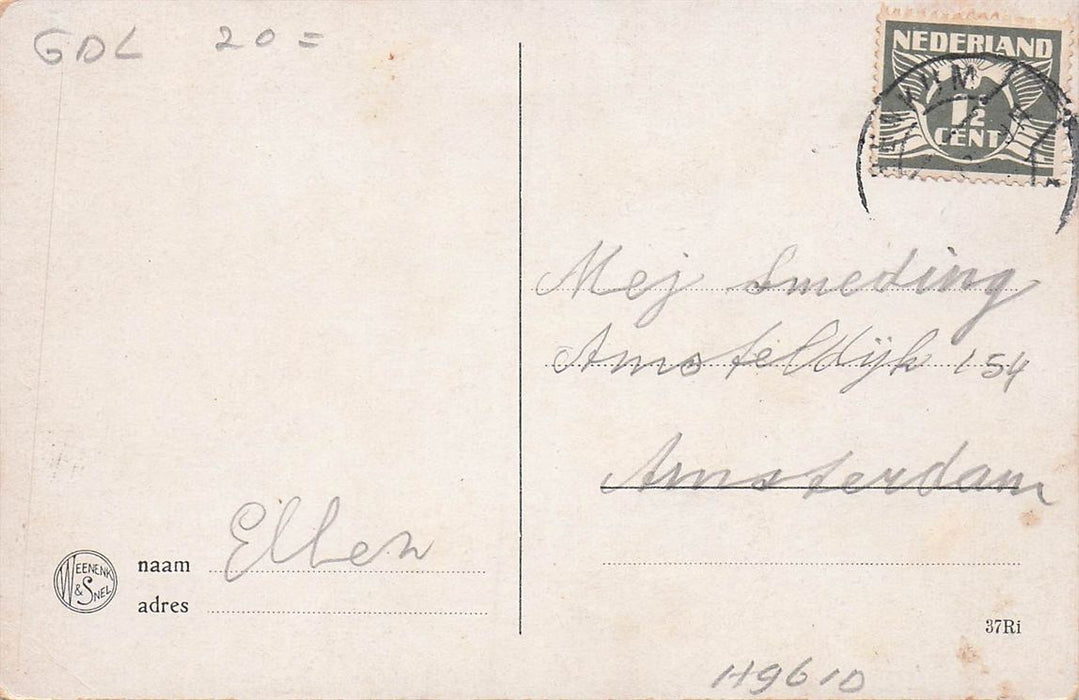 GDL 20=
NEDERLAND
1½
CENT
Mej Smeding
Amsteldijk 154
Amsterdam
naam Ellen
adres
WEENENK
& SNEL
37Ri
H9610